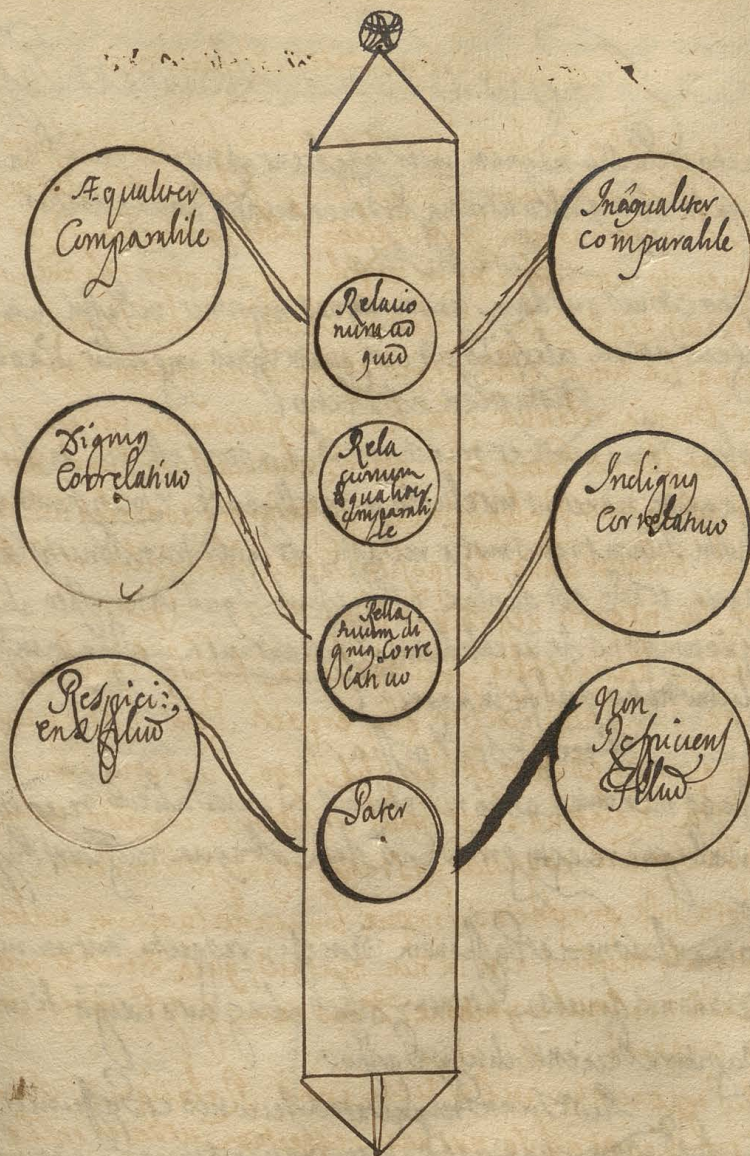 Æqualiter
Comparabile
Inæqualiter
comparabile
Relatio
num ad
quid
Dignus
Correlativo
Rela
tionum
æqualiter
comparabi
le
Indignus
Correlativo
Rella
tivum di
gnus Corre
lativo
Respici:
ens filium
Non
Respiciens
Filium
Pater